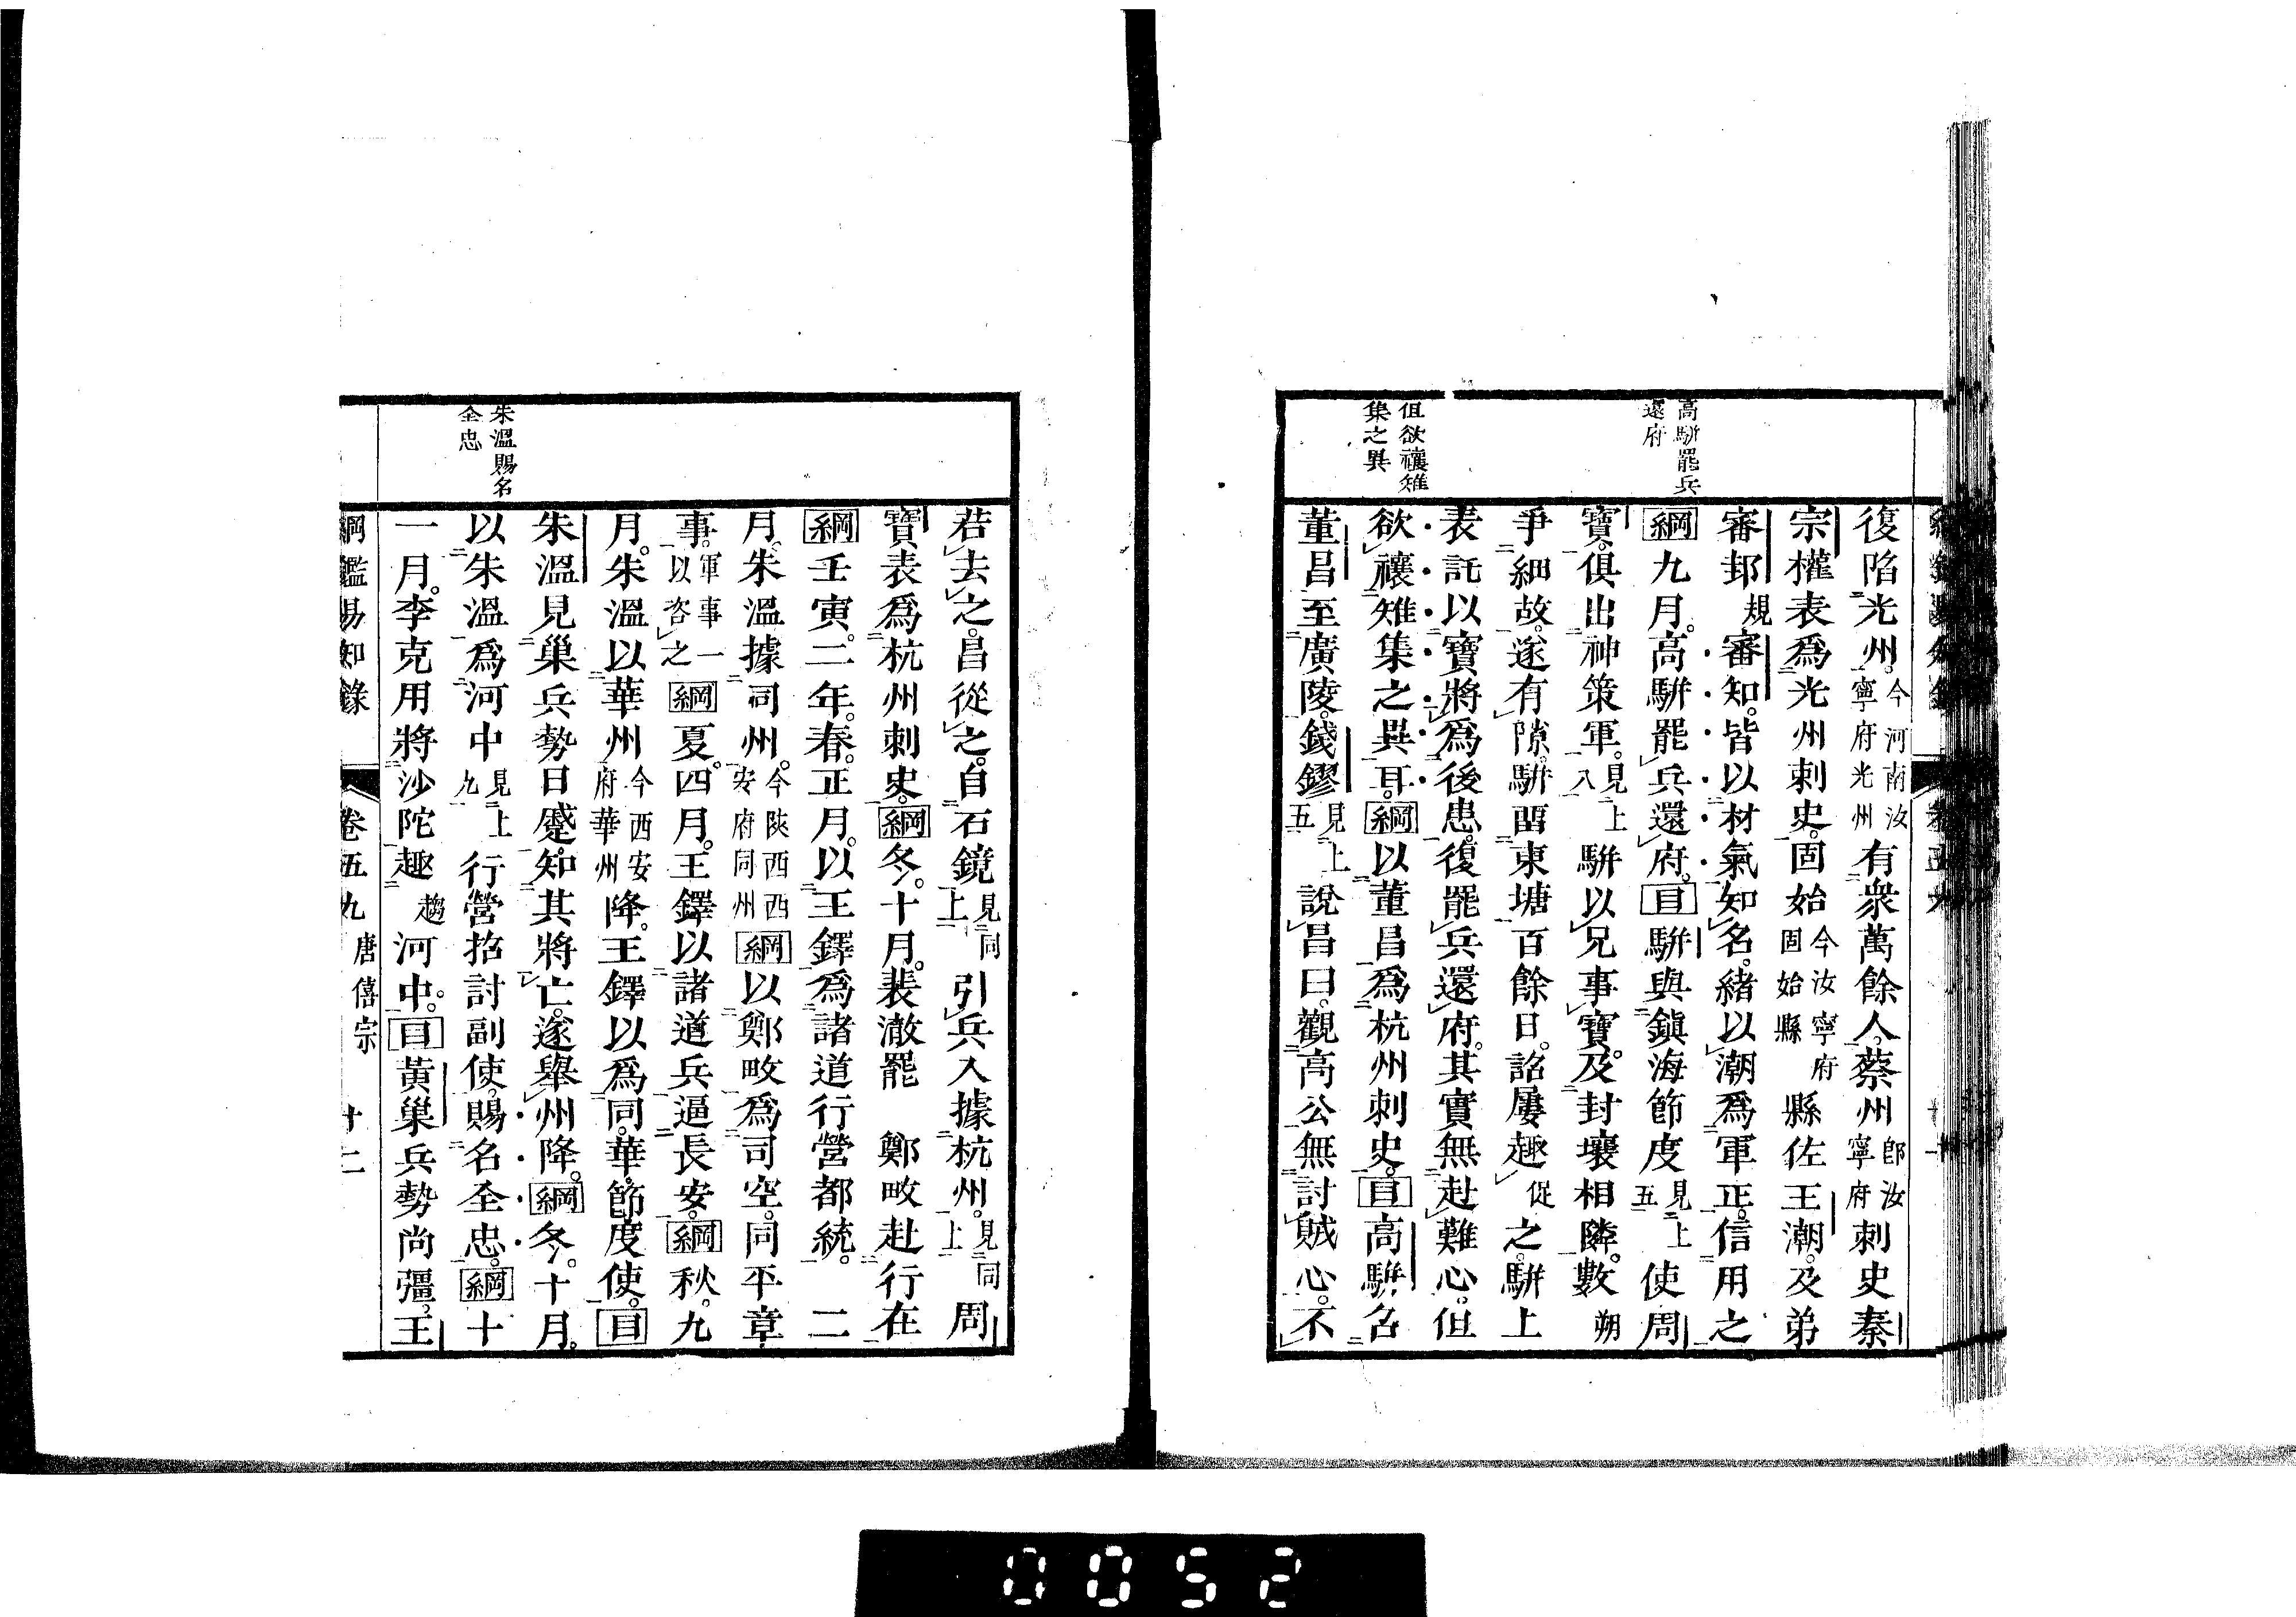 復陷光州。今河南汝寧府光州有衆萬餘人。蔡州卽汝寧府刺史秦
宗權表爲光州刺史。固始今汝寧府固始縣縣佐王潮。及弟
審邽規審知。皆以材氣知名。緒以潮爲軍正。信用之
高駢罷兵還府
綱九月。高駢罷兵還府。目駢與鎭海節度見上五使周
寶。俱出神策軍。見上八駢以兄事寶。及封壤相隣。數朔
爭細故。遂有隙。駢畱東塘百餘日。詔屢趣促之。駢上
表託以寶將爲後患。復罷兵還府。其實無赴難心。但
但欲禳雉集之異
欲禳雉集之異耳。綱以董昌爲杭州刺史。目高駢名
董昌至廣陵。錢鏐見上五說昌曰。觀高公無討賊心。不
若去之。昌從之。自石鏡見同上引兵入據杭州。見同上周
寶表爲杭州刺史。綱冬。十月。裴澈罷 鄭畋赴行在
綱壬寅。二年。春。正月。以王鐸爲諸道行營都統。 二
月。朱溫據同州。今陝西西安府同州綱以鄭畋爲司空。同平章
事。軍事一以咨之綱夏。四月。王鐸以諸道兵逼長安。綱秋。九
月。朱溫以華州今西安府華州降。王鐸以爲同。華。節度使。目
朱溫賜名全忠
朱溫見巢兵勢日蹙。知其將亡。遂舉州降。綱冬。十月。
以朱溫爲河中見上九行營招討副使。賜名全忠。綱十
一月。李克用將沙陀趣趨河中。目黃巢兵勢尚彊。王
綱鑑易知錄 卷五九 唐僖宗 十二
0052